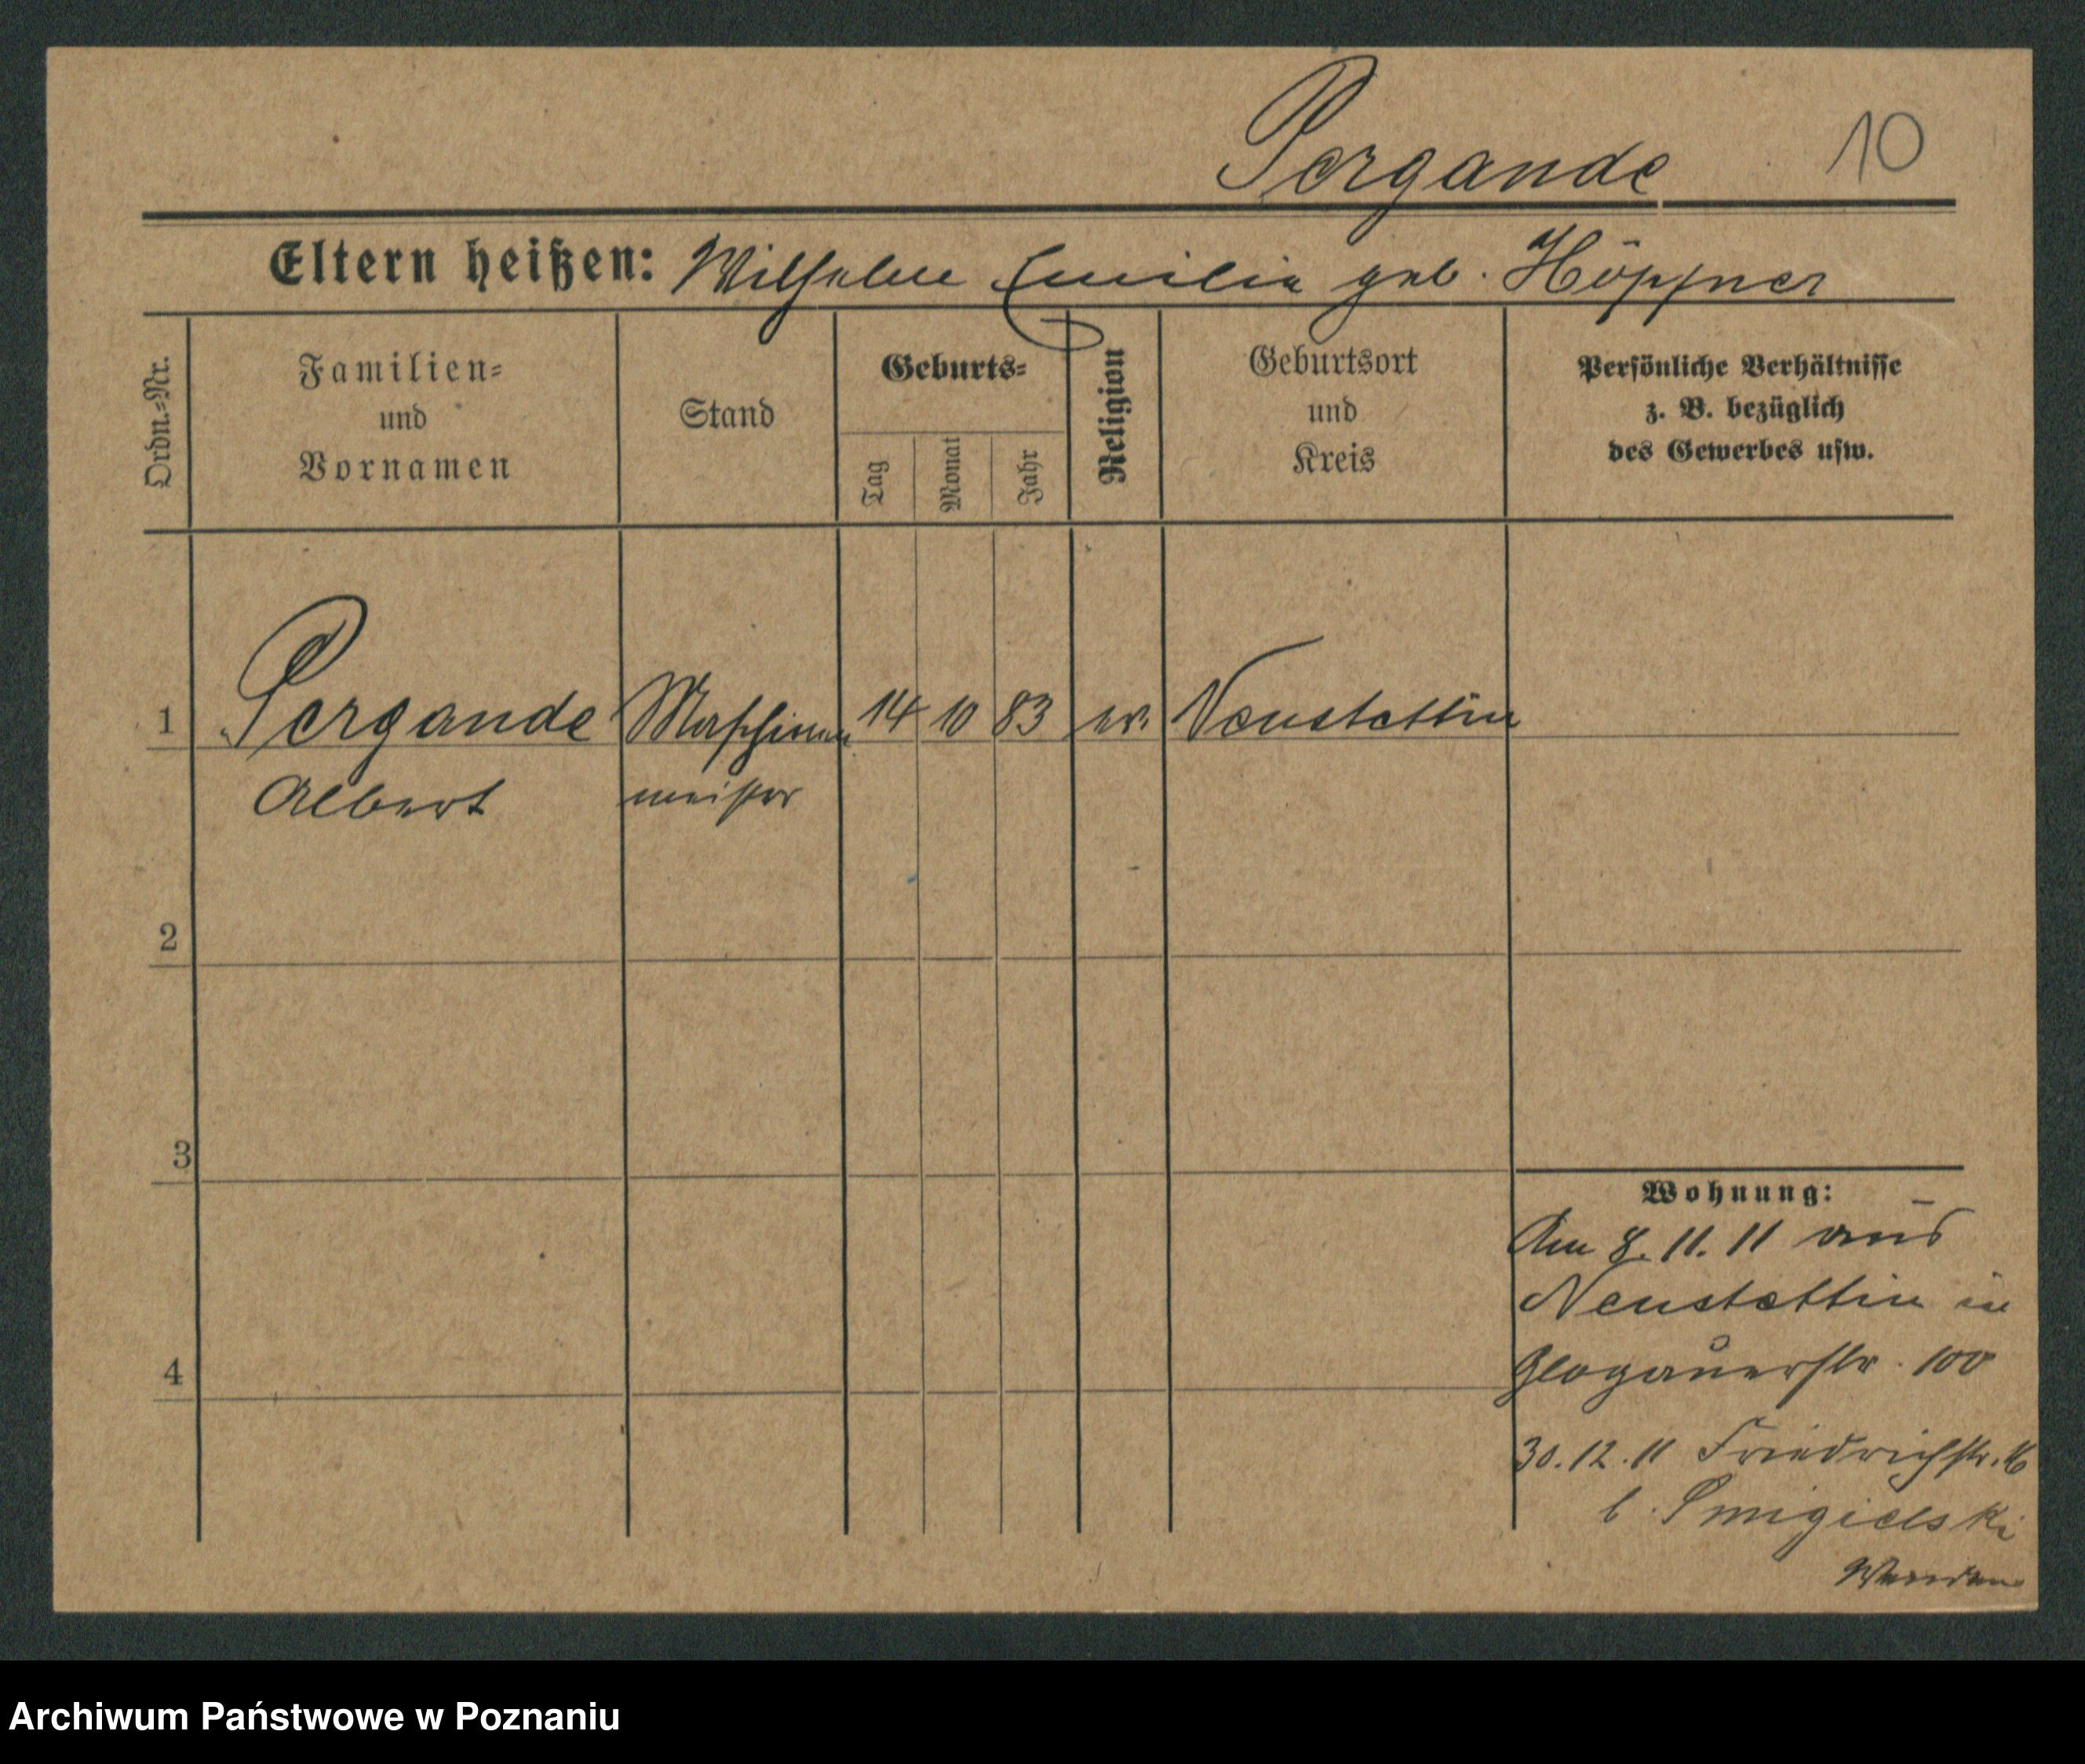 Pergande 10
Eltern heißen: Wilhelm Emilie geb. Höppner
Ordn.-Nr.
Familien-
und
Vornamen
Stand
Geburts-
Tag
Monat
Jahr
Religion
Geburtsort
und
Kreis
Persönliche Verhältnisse
z. B. bezüglich
des Gewerbes usw.
1 Pergande Maschinen 14 10 83 ev. Neustettin
Albert meister
2
3
4
Wohnung:
Am 8. 11. 11 aus
Neustettin in
Glogauerstr. 100
30. 12. 11 Friedrichstr. 16
b. Smigielski